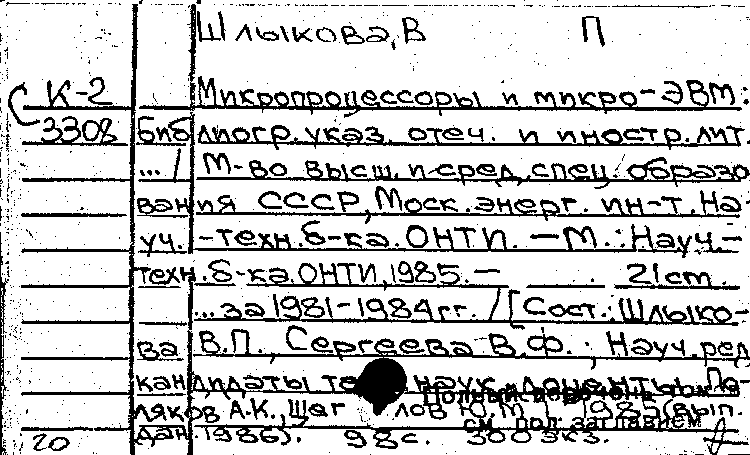 Шлыкова, В П
К-2 Микропроцессоры и микро-ЭВМ:
3308 библиогр. указ. отеч. и иностр. лит.
... / М-во высш. и сред. спец. образо
вания СССР, Моск. энерг. ин-т. На-
уч.-техн. б-ка. ОНТИ. — М.: Науч.-
техн. б-ка. ОНТИ, 1985. — 21 см.
... за 1981-1984 гг. / [Сост.: Шлыко-
ва В.П., Сергеева В.Ф.; Науч. ред
кандидаты наук, доценты По-
ляков А.К., Ю.М.] 1985 (вып.
дан. 1986). 98 с. 300 экз.
Полный перечень
см. под заглавием
20